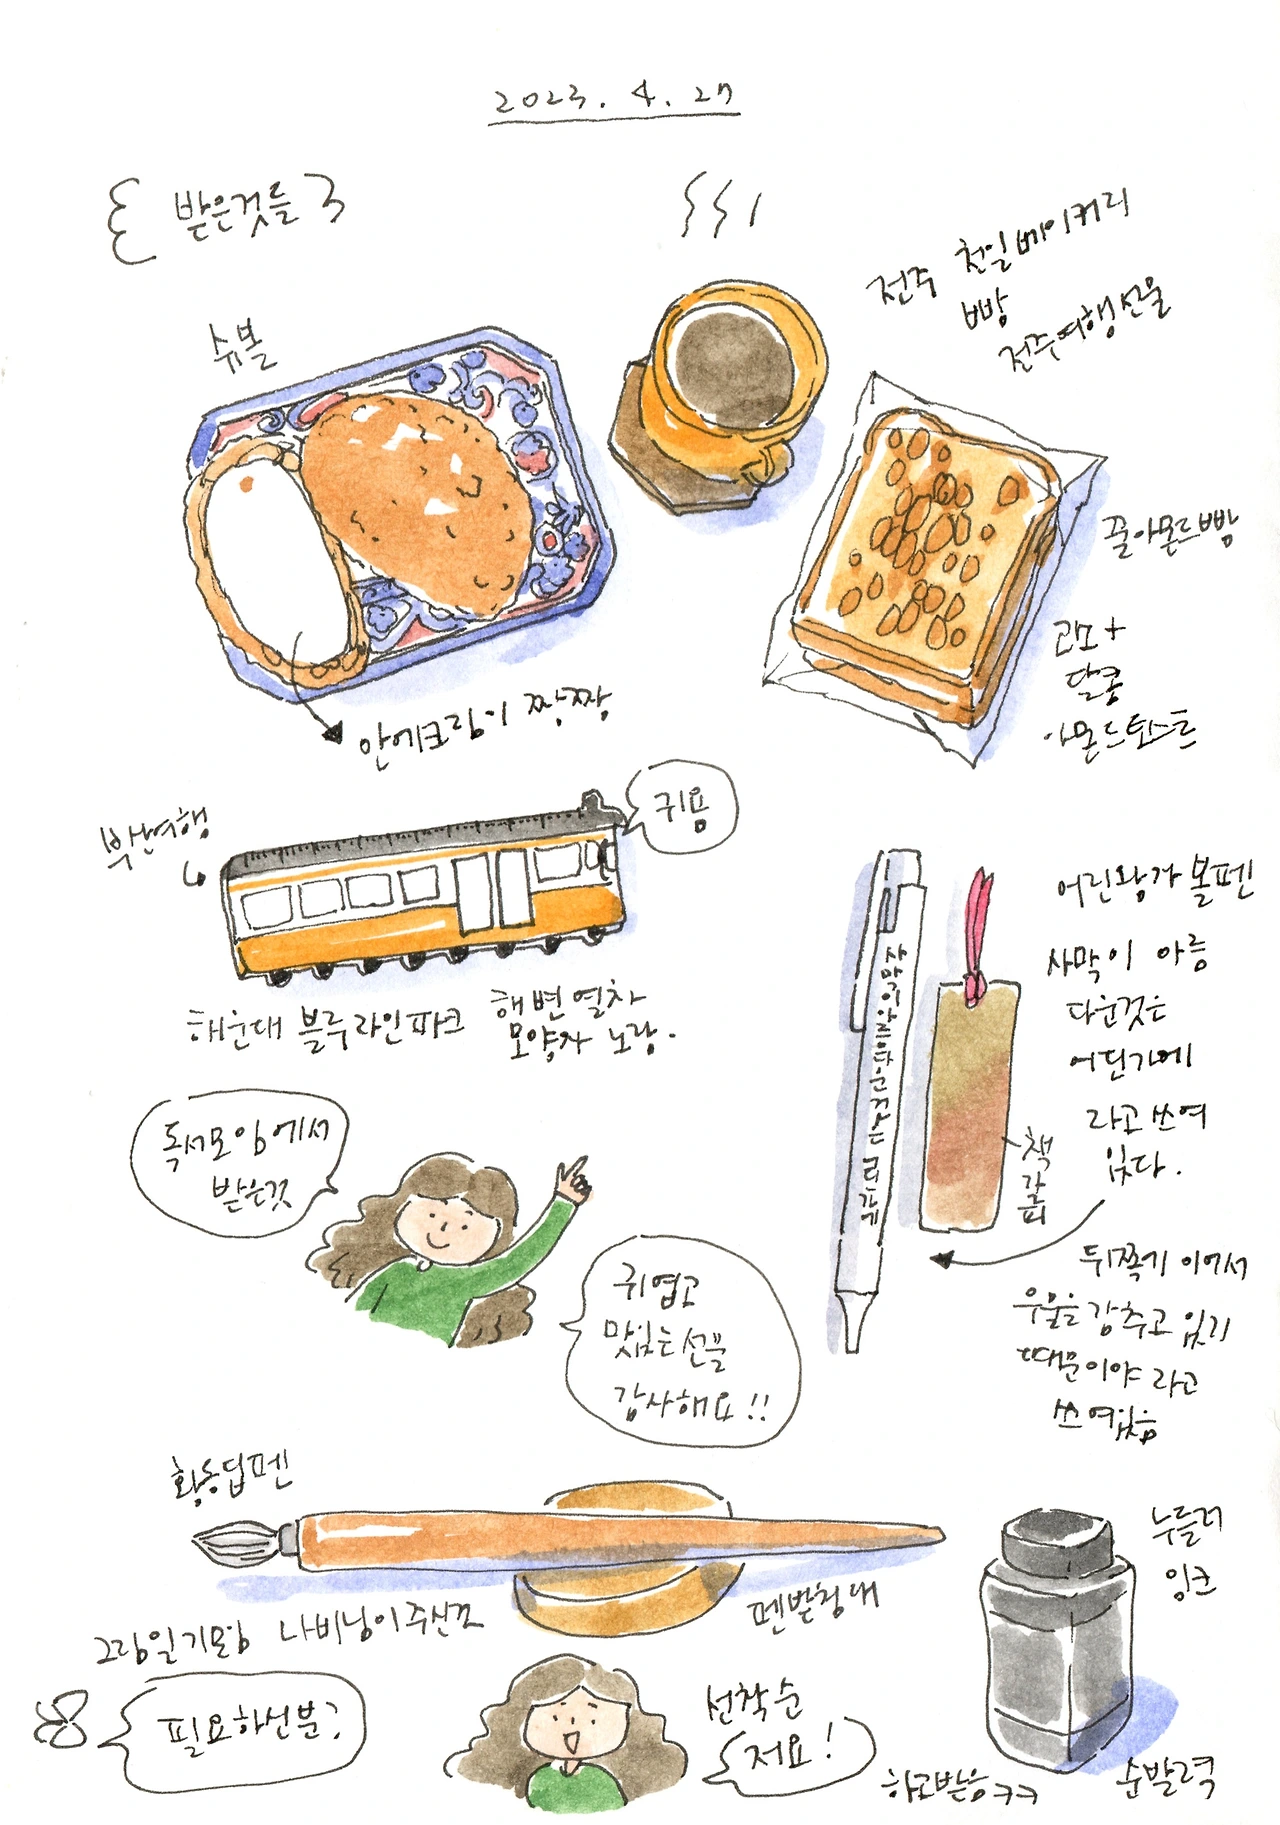 2023. 4. 27
받은것들
슈볼
전주 천일베이커리
빵
전주여행선물
꿀아몬드빵
고소+
달콩
아몬드토스트
안에크림이 짱짱
부산여행
귀욤
해운대 블루라인파크 해변열차
모양자 노랑.
어린왕자 볼펜
사막이 아름
다운것은
어딘가에
라고 쓰여
있다.
책갈피
뒤쪽기 이어서
우물을 감추고 있기
때문이야 라고
쓰여있음
독서모임에서
받은것
귀엽고
맛있는선물
감사해요!!
황동딥펜
그림일기모임 나비님이주신것
펜받침대
누들러
잉크
필요하신분?
선착순
저요!
하고받음ㅋㅋ
순발력